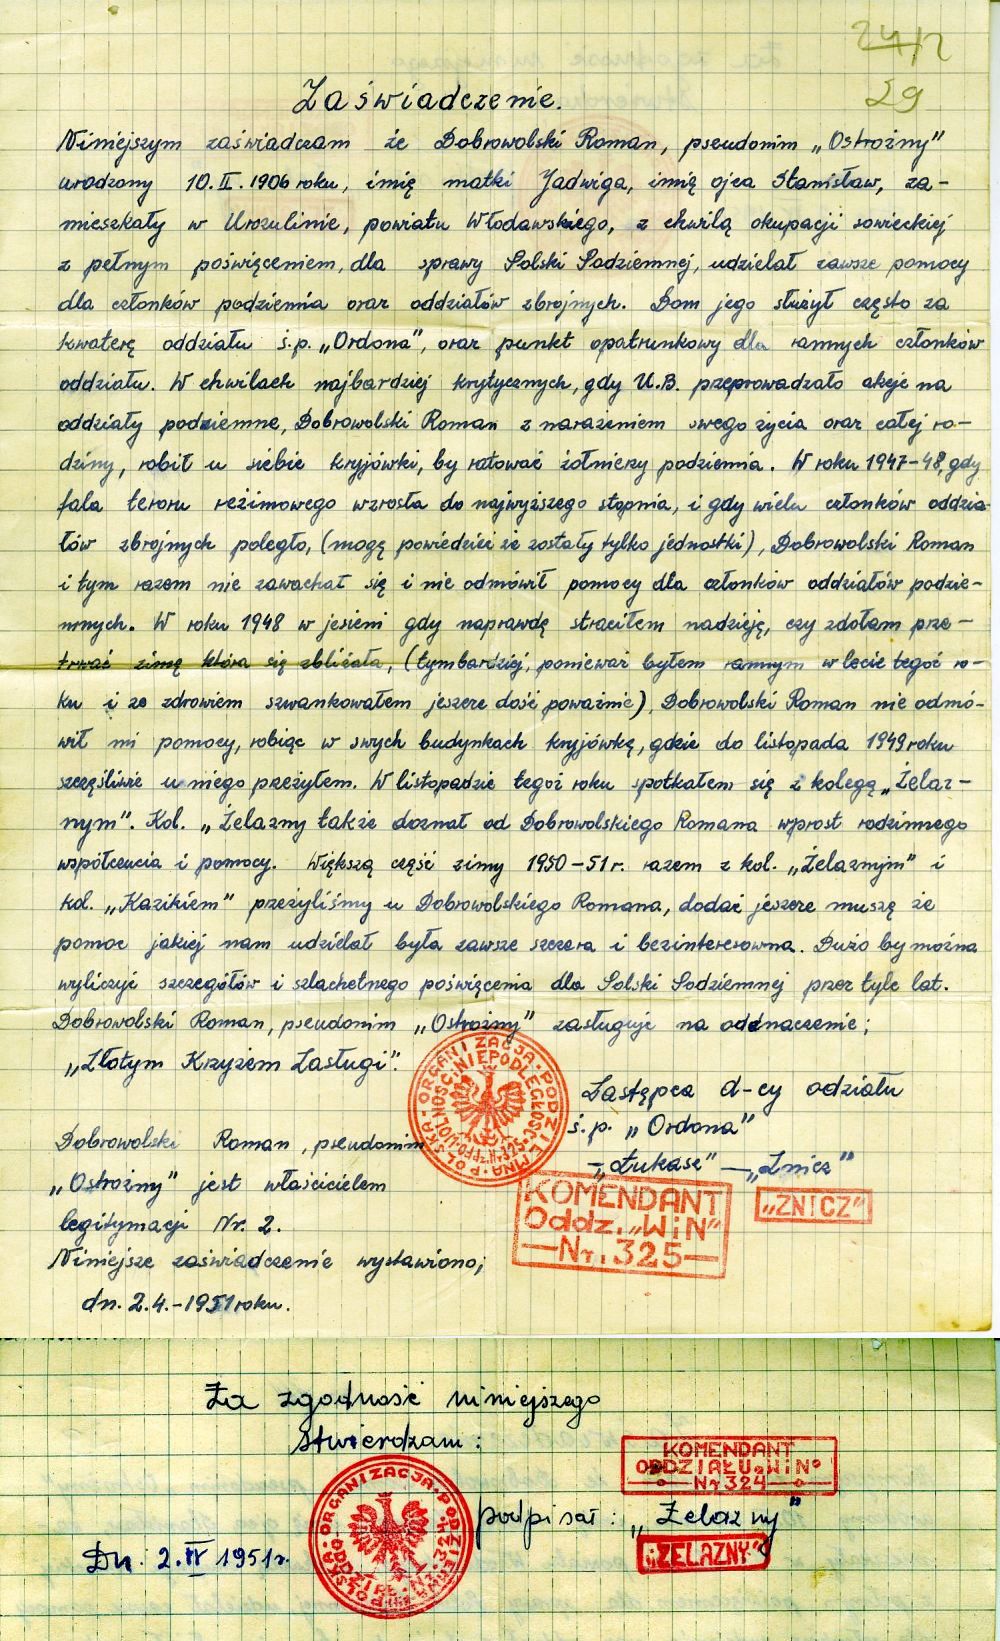 24/2
29
Zaświadczenie.
Niniejszym zaświadczam że Dobrowolski Roman, pseudonim „Ostrożny"
urodzony 10.II.1906 roku, imię matki Jadwiga, imię ojca Stanisław, za-
mieszkały w Urszulinie, powiatu Włodawskiego, z chwilą okupacji sowieckiej
z pełnym poświęceniem, dla sprawy Polski Podziemnej, udzielał zawsze pomocy
dla członków podziemia oraz oddziałów zbrojnych. Dom jego służył często za
kwaterę oddziału ś.p. „Ordona", oraz punkt opatrunkowy dla rannych członków
oddziału. W chwilach najbardziej krytycznych, gdy U.B. przeprowadzało akcje na
oddziały podziemne, Dobrowolski Roman z narażeniem swego życia oraz całej ro-
dziny, robił u siebie kryjówki, by ratować żołnierzy podziemia. W roku 1947-48, gdy
fala teroru reżimowego wzrosła do najwyższego stopnia, i gdy wielu członków oddzia-
łów zbrojnych poległo, (mogę powiedzieć że zostały tylko jednostki), Dobrowolski Roman
i tym razem nie zawachał się i nie odmówił pomocy dla członków oddziałów podzie-
mnych. W roku 1948 w jesieni gdy naprawdę straciłem nadzieję, czy zdołam prze-
trwać zimę która się zbliżała, (tymbardziej, ponieważ byłem rannym w lecie tegoż ro-
ku i ze zdrowiem szwankowałem jeszcze dość poważnie), Dobrowolski Roman nie odmó-
wił mi pomocy, robiąc w swych budynkach kryjówkę, gdzie do listopada 1949 roku
szczęśliwie u niego przeżyłem. W listopadzie tegoż roku spotkałem się z kolegą „Żelaz-
nym". Kol. „Żelazny także doznał od Dobrowolskiego Romana wprost rodzinnego
współczucia i pomocy. Większą część zimy 1950-51 r. razem z kol. „Żelaznym" i
kol. „Kazikiem" przeżyliśmy u Dobrowolskiego Romana, dodać jeszcze muszę że
pomoc jakiej nam udzielał była zawsze szczera i bezinteresowna. Dużo by można
wyliczyć szczegółów i szlachetnego poświęcenia dla Polski Podziemnej przez tyle lat.
Dobrowolski Roman, pseudonim „Ostrożny" zasługuje na odznaczenie;
„Złotym Krzyżem Zasługi".
POLSKA·ORGANIZACJA·PODZIEMNA
WOLNOŚĆ·NIEPODLEGŁOŚĆ
325
Zastępca d-cy odziału
ś.p. „Ordona"
-„Łukasz" - „Znicz"
KOMENDANT
Oddz. „WiN"
-Nr. 325-
„ZNICZ"
Dobrowolski Roman, pseudonim
„Ostrożny" jest właścicielem
legitymacji Nr. 2.
Niniejsze zaświadczenie wystawiono;
dn. 2.4.-1951 roku.
Za zgodność niniejszego
stwierdzam:
KOMENDANT
ODDZIAŁU „WiN"
Nr 324
POLSKA·ORGANIZACJA·PODZIEMNA
324
podpisał: „Żelazny"
„ŻELAZNY"
Dn. 2.IV 1951 r.